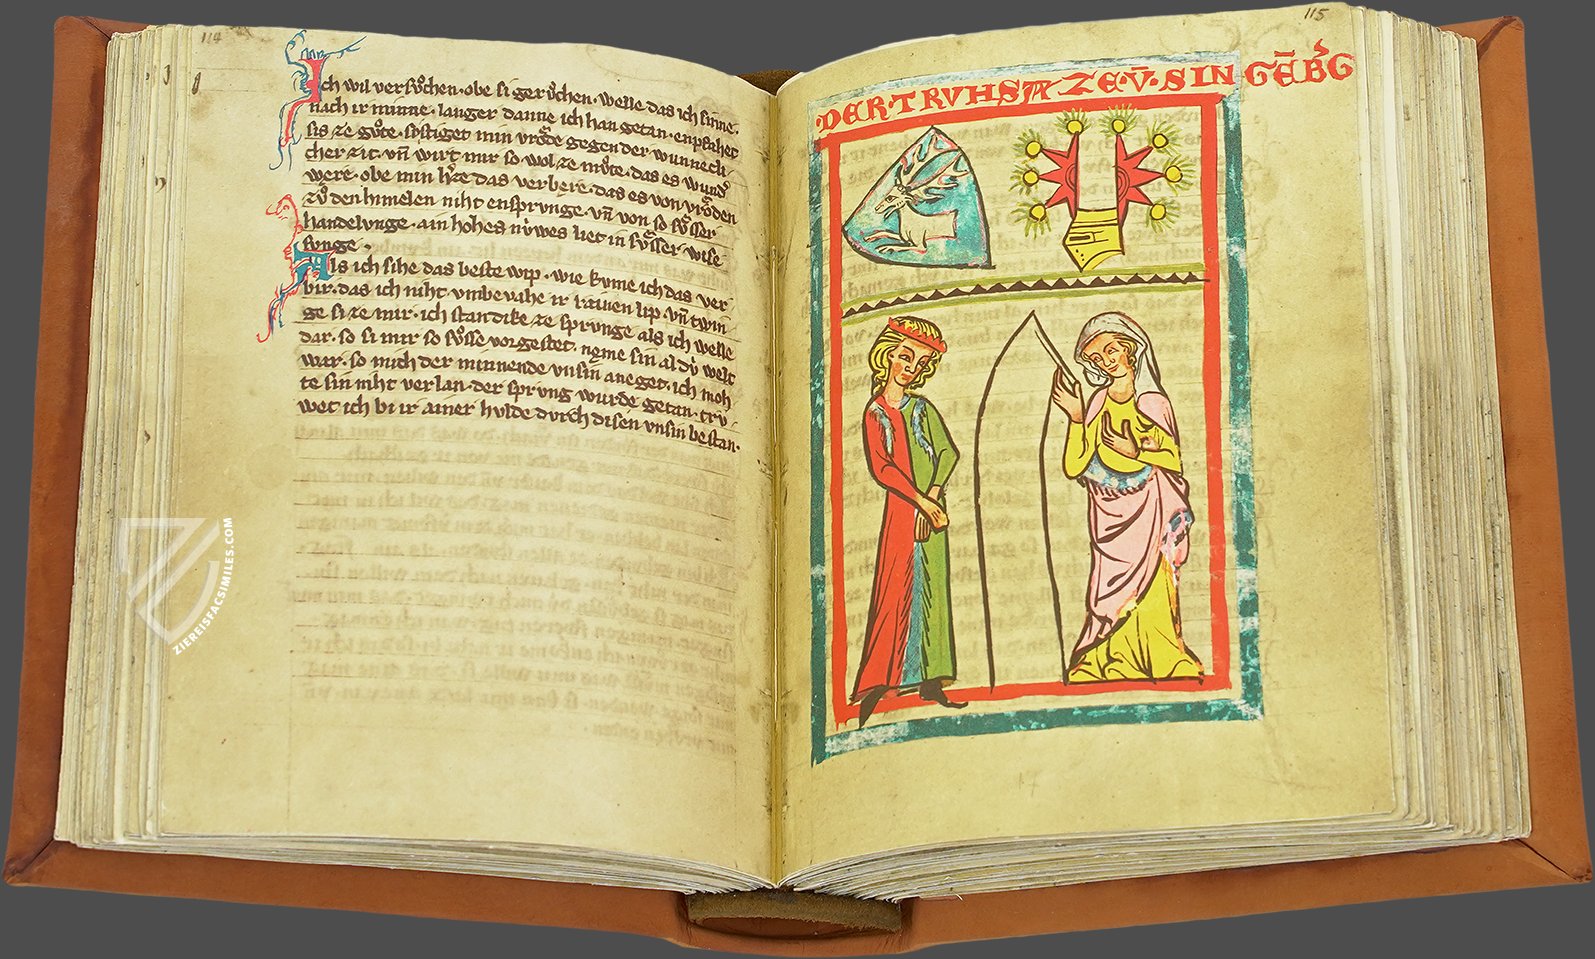 114
Ich wil versůchen · obe si gerůchen · welle das ich sinne ·
nach ir minne · langer danne ich han getan · enpfahet
sis ze gůte · so stiget min vrǒde gegen der wunnecli
cher zit · vn̄ wirt mir so wol ze můte · das es wund
were · obe min h̄ze das verbere · das es von vrǒden
zů den himelen niht ensprvnge · vn̄ von so sůsser
handelvnge · ain hohes nv́wes liet in sůsser wise
svnge ·
Als ich sihe das beste wip · wie kvme ich das ver
bir · das ich niht vmbevahe ir rainen lip · vn̄ twin
ge si ze mir · ich stan dike ze sprvnge als ich welle
dar · so si mir so sůsse vorgestet · neme sin al dv́ welt
war · so mich der minnende vnsin aneget · ich moh
te sin niht verlan · der sprvng wurde getan · trv
wet ich bi ir ainer hvlde dvrch disen vnsin bestan ·
115
·DER·TRVHSAZE·V̄·SINGĒB̉G
ZIEREISFACSIMILES.COM